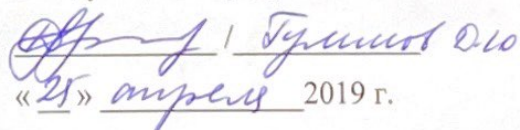 / Гулимов Д.Ю
«25» апреля 2019 г.